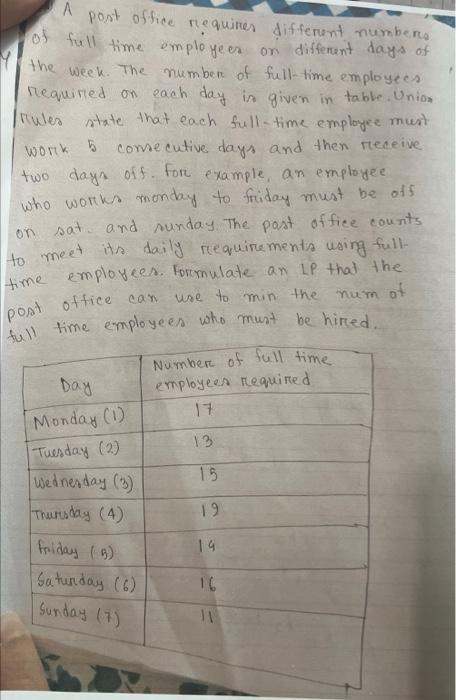 A post office requires different numbers
of full time employees on different days of
the week. The number of full-time employees
required on each day is given in table. Union
rules state that each full-time employee must
work 5 consecutive days and then receive
two days off. For example, an employee
who works monday to friday must be off
on sat. and sunday. The post office counts
to meet its daily requirements using full-
time employees. Formulate an LP that the
post office can use to min the num of
full time employees who must be hired.
Day
Number of full time
employees required
Monday (1) 17
Tuesday (2) 13
Wednesday (3) 15
Thursday (4) 19
Friday (5) 14
Saturday (6) 16
Sunday (7) 11